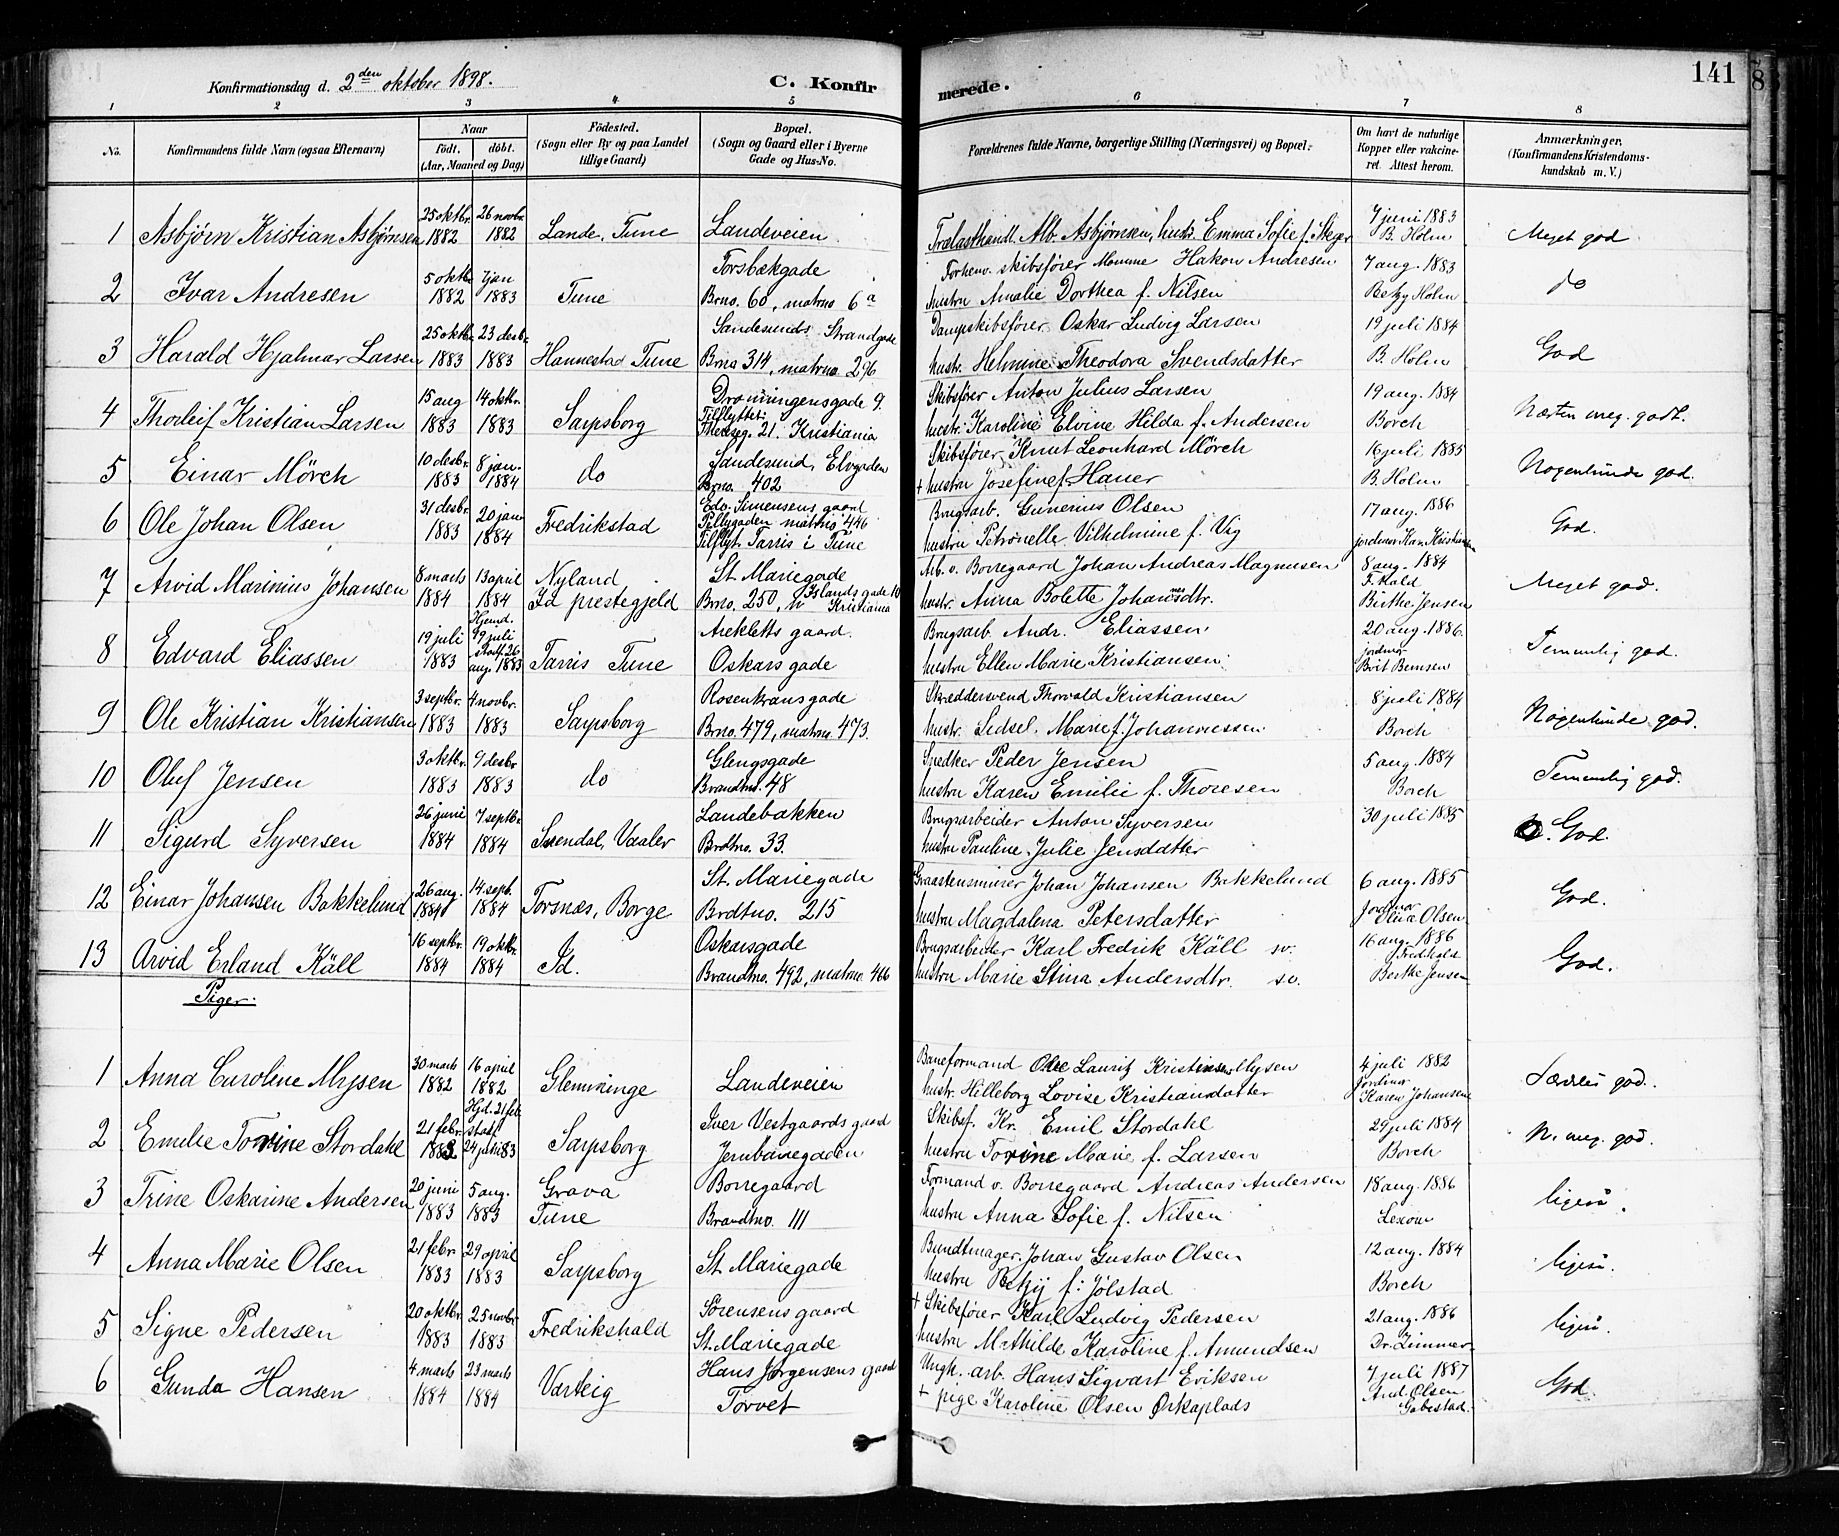 Konfirmationsdag d. 2den oktober 1898. C. Konfirmerede. 141
1 2 3 4 5 6 7 8
No. Konfirmandens fulde Navn (ogsaa Efternavn) Naar født. døbt. (Aar, Maaned og Dag) Fødested. (Sogn eller By og paa Landet tillige Gaard) Bopæl. (Sogn og Gaard eller i Byerne Gade og Hus-No. Forældrenes fulde Navne, borgerlige Stilling (Næringsvei) og Bopæl. Om havt de naturlige Kopper eller vakcineret. Attest herom. Anmærkninger. (Konfirmandens Kristendomskundskab m. V.)
1 Asbjørn Kristian Asbjørnsen 25 oktbr. 1882 26 novbr. 1882 Lande, Tune Landeveien Trælasthandl. Alb. Asbjørnsen, hustr. Emma Sofie f. 7 juni 1883 B. Holm Meget god
2 Ivar Andresen 5 oktbr 1882 7 jan 1883 Tune Torsbækgade Brno. 60, matrno 6a Forhenv. skibsfører Momme Hakon Andresen hustru Amalie Dorthea f. Nilsen 7 aug. 1883 Betzy Holm do
3 Harald Hjalmar Larsen 25 oktbr 1883 23 desbr. 1883 Hannestad Tune Sandesunds Strandgade Brno 314, matrno 296 Dampskibsfører Oskar Ludvig Larsen hustr. Helmine Theodora Svendsdatter 19 juli 1884 B. Holm God
4 Thorleif Kristian Larsen 15 aug 1883 14 oktbr. 1883 Sarpsborg Dronningensgade 9. Tilflyttet: 21. Kristiania Skibsfører Anton Julius Larsen hustr. Karoline Elvine Hilda f. Andersen 19 aug. 1884 Borch Næsten meg. godt.
5 Einar Mörch 10 desbr. 1883 8 jan. 1884 do Sandesund, Elvgaden Brno. 402 Skibsfører Knut Leonhard Mörch + hustru Josefine f. Hauer 16 juli 1885 B. Holm Nogenlunde god.
6 Ole Johan Olsen 31 desbr. 1883 20 jan 1884 Fredrikstad Edv. Simensens gaard Pellygaden matrno 446 Tilflyt. Tarris i Tune Brugsarb. Gunerius Olsen hustru Petronelle Vilhelmine f. Vig 17 aug. 1886 jordmor Kar. Kristiansen God.
7 Arvid Marinius Johansen 8 marts 1884 13 april 1884 Nyland Id prestegjeld St. Mariegade Brno. 250, Islands gade 10 Kristiania Arb. v. Borregaard Johan Andreas Magnusen hustr. Anna Bolette Johannesdtr. 8 aug. 1884 F. hald Birthe Jensen Meget god.
8 Edvard Eliassen 19 juli 1883 Hjemd. 29 juli stadf. 26 aug. 1883 Tarris Tune Arekletts gaard. Oskars gade Brugsarb. Andr. Eliassen hustru Ellen Marie Kristiansen 20 aug. 1886. jordmor Brit Bernsen Temmelig god.
9 Ole Kristian Kristiansen 3 septbr. 1883 4 novbr. 1883 Sarpsborg Rosenkransgade Brno. 479, matrno. 473. Skreddersvend Thorvald Kristiansen hustr. Sidsel Marie f. Johannessen 8 juli 1884 Borch Nogenlunde god.
10 Oluf Jensen 3 oktbr. 1883 9 desbr 1883 do Glengsgade Brandtno. 48 Snedker Peder Jensen hustru Karen Emilie f. Thoresen 5 aug. 1884 Borch Temmelig god.
11 Sigurd Syversen 26 juni 1884 7 septbr. 1884 Svendal, Vaaler Landebakken Brdtno. 33. Brugsarbeider Anton Syversen hustru Pauline Julie Jensdatter 30 juli 1885 God.
12 Einar Johansen Bakkelund 26 aug. 1884 14 septb. 1884 Torsnæs, Borge St. Mariegade Brdtno. 215 Graastensmurer Johan Johansen Bakkelund hustru Magdalena Petersdatter 6 aug. 1885 jordmor Olsen God.
13 Arvid Erland Käll 16 septbr. 1884 19 oktbr. 1884 Id. Oskarsgade Brandtno. 492, matrno. 466 Brugsarbeider Karl Fredrik Käll sv. hustru Marie Stina Andersdtr. sv. 16 aug. 1886 Fredhald Berthe Jensen God.
Piger.
1 Anna Caroline Mysen 30 marts 1882 16 april 1882 Glemminge Landeveien Baneformand Ole Lauritz Kristiansen Mysen hustr. Hilleborg Lovise Kristiansdatter 4 juli 1882 jordmor Karen Johansen Særdeles god.
2 Emilie Tovine Stordahl 21 febr. 1883 Hjd. 21 feb. stadf. 24 juni 83 Sarpsborg Iver Vestgaards gaard Jernbanegaden Skibsf. Kr. Emil Stordahl hustru Tovine Marie f. Larsen 29 juli 1884 Borch N. meg. god.
3 Trine Oskarine Andersen 20 juni 1883 5 aug. 1883 Grava Tune Borregaard Brandtno. 111 Formand v. Borregaard Andreas Andersen hustru Anna Sofie f. Nilsen 18 aug. 1886 Lexow ligesü.
4 Anna Marie Olsen 21 febr. 1883 29 april 1883 Sarpsborg St. Mariegade Bundtmager Johan Gustav Olsen hustru Betzy f. Jölstad 12 aug. 1884 Borch ligesü.
5 Signe Pedersen 20 oktbr. 1883 25 novbr 1883 Fredrikshald Sörensens gaard St. Mariegade + Skibsfører Karl Ludvig Pedersen hustru Mathilde Karoline f. Amundsen 21 aug. 1886 Dr. Zimmer ligesü.
6 Gunda Hansen 4 marts 1884 23 marts 1884 Varteig Hans Jørgensens gaard Torvet Ungk. arb. Hans Sigvart Eriksen + pige Karoline Olsen Ørkaplads 7 juli 1887 And. Olsen Gabestad. God.